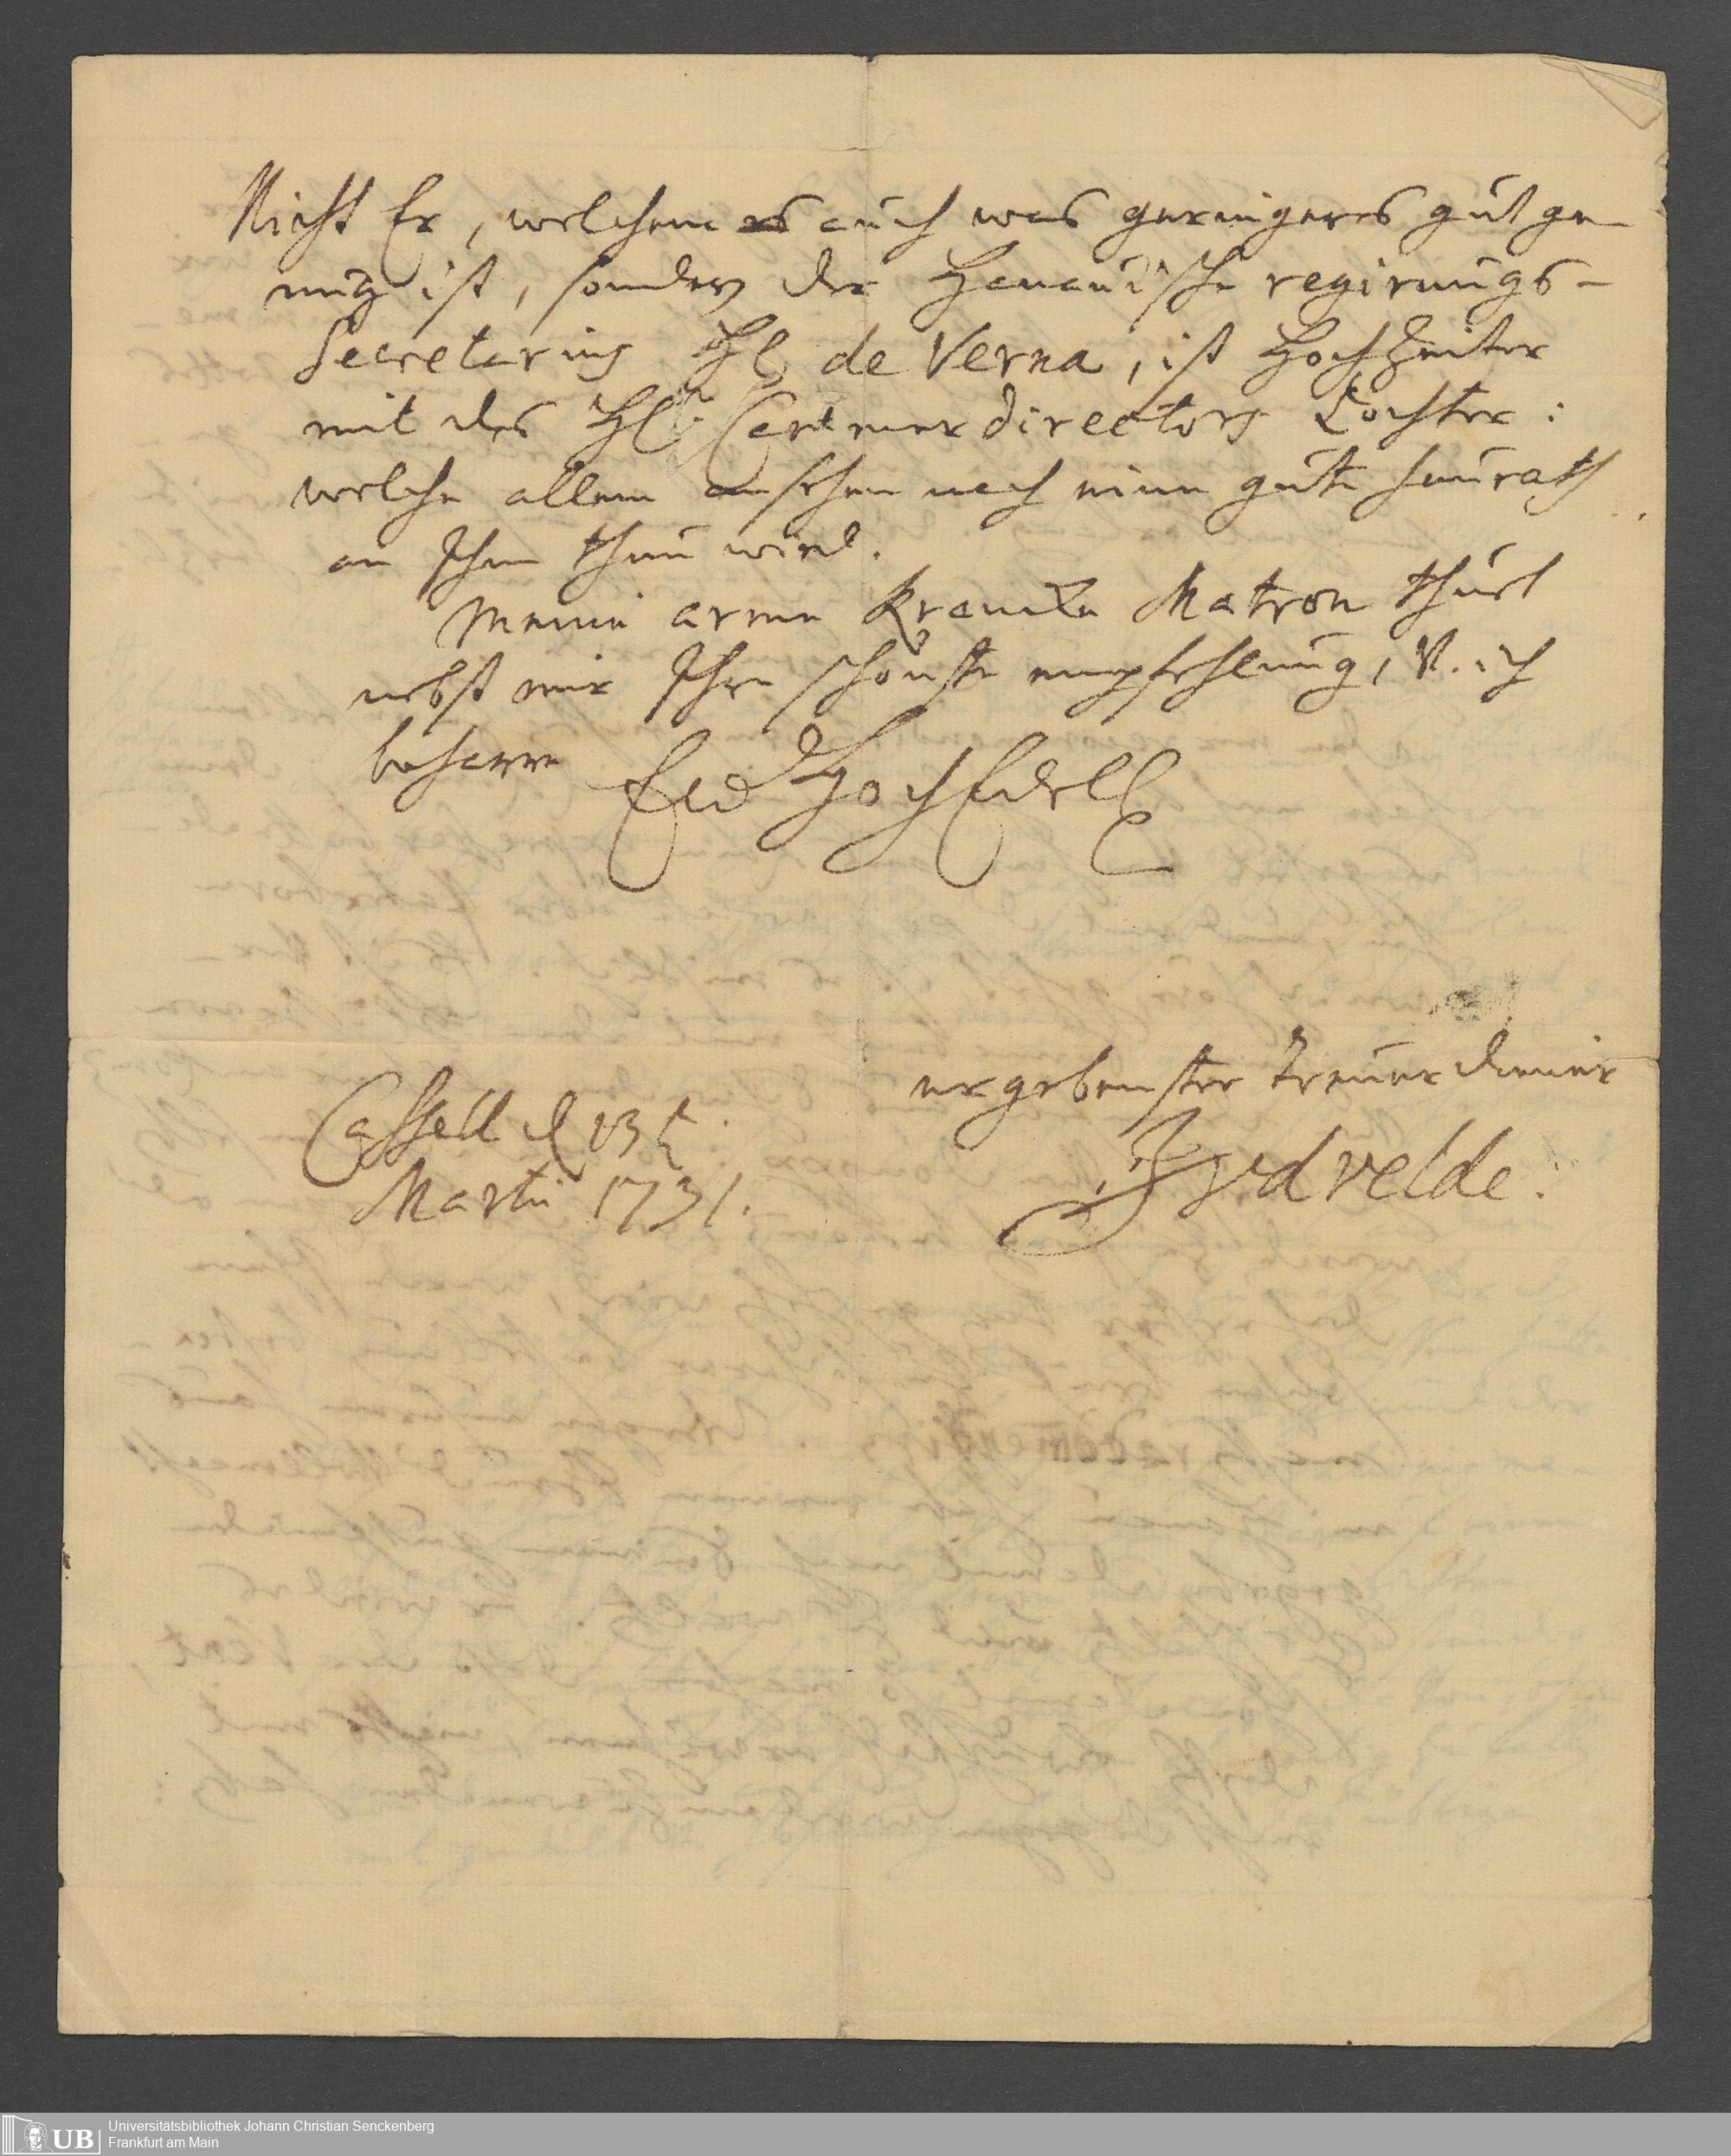 Nicht Er, welchem es auch was geringeres gut ge-
nug ist, sondern der Hanauische regirungs-
Secretarius H. de Verna, ist Hochzeiter
mit des H. Cammerdirectors Tochter:
welche allem ansehen nach eine gute heurath
an Ihm thun wird.
Meine arme krancke Matron thut
nebst mir Ihre schönste empfehlung, V. ich
beharre Ew HochEdell
ergebenster treuer diener
Cassell d 13t.
Martii 1731.
vdvelde.
UB
Universitätsbibliothek Johann Christian Senckenberg
Frankfurt am Main